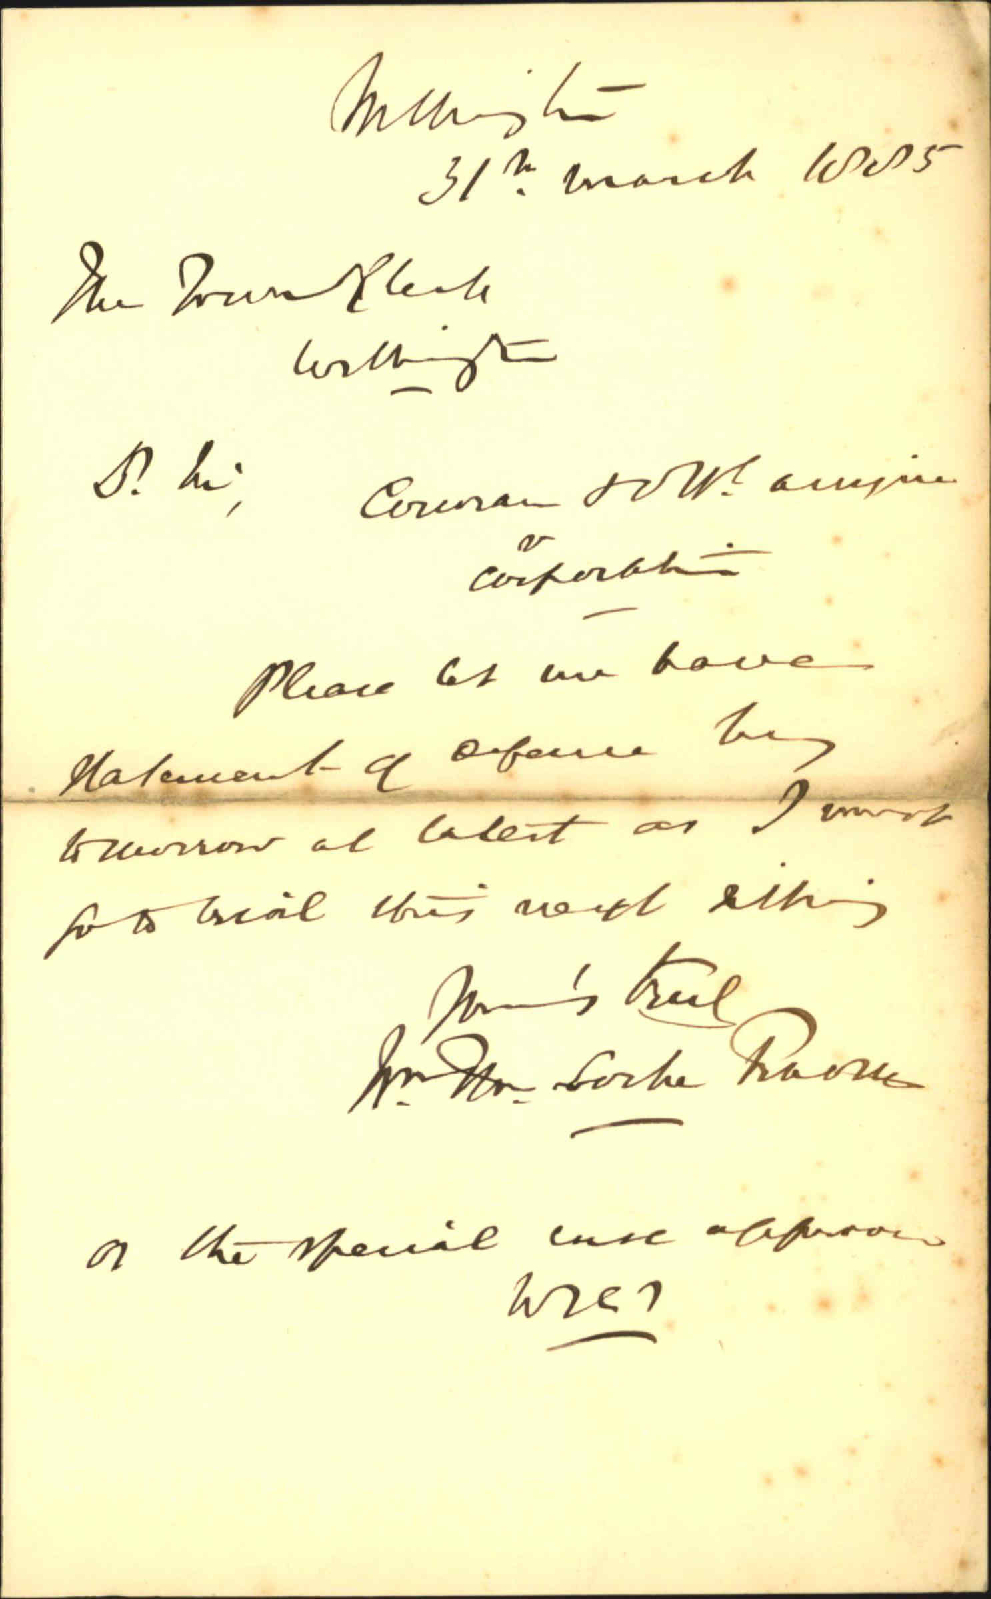 Wellington
31st March 1885
The Town Clerk
Wellington
Dr. Sir,
Corcoran
v
Corporation
Please let me have
statement of defence by
tomorrow at latest as I must
go to trial this next sitting
Yours truly
Wm. Locke Travers
or the special case approved
WLT